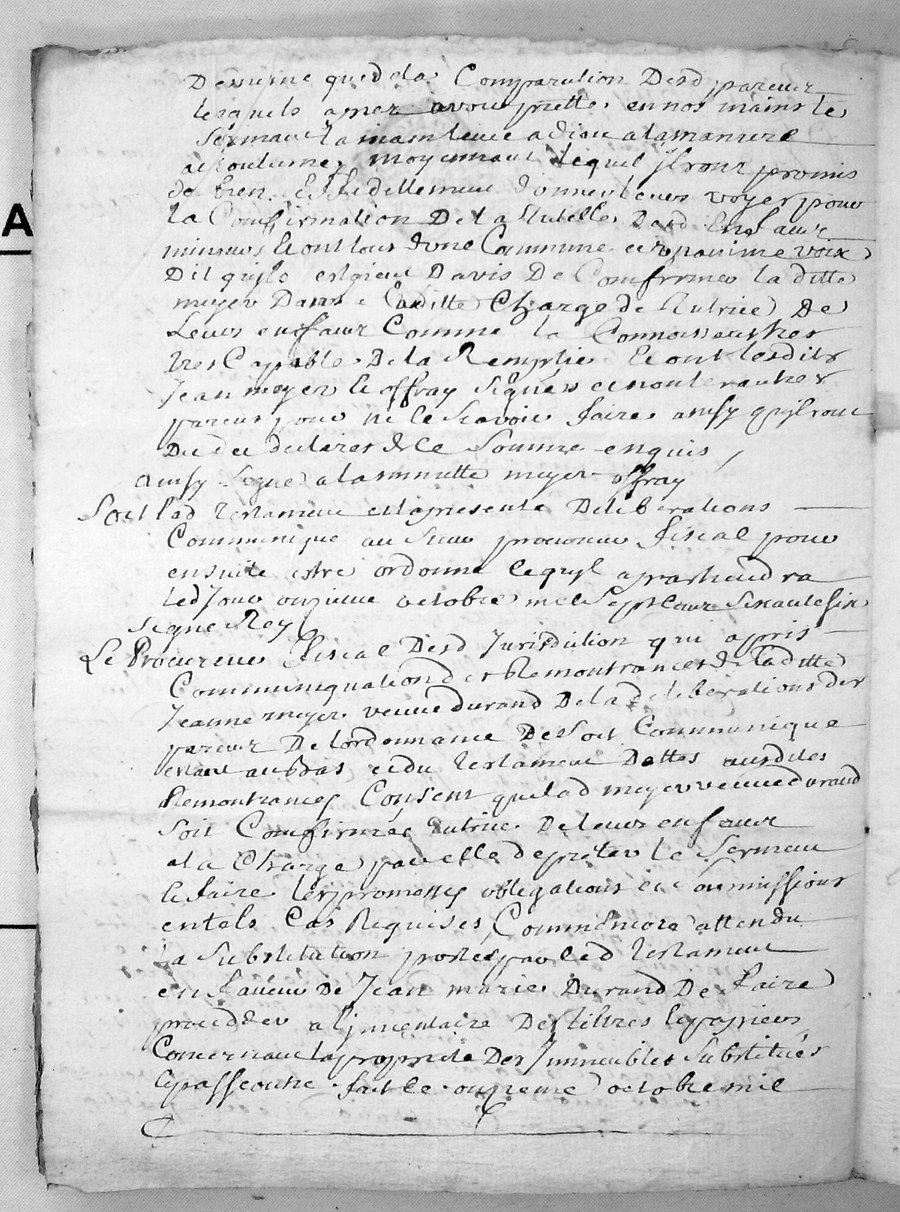 Demeine que de la Comparution Desd parens
lesquels apres avoir prettes en nos mains le
Sermant la main levée a dieu a la maniere
acoutumée moyennant lequel jls ont promis
de bien Et fidellement donner leurs voyes pour
la Comfirmation De la tutelle Desd Enfans
mineurs Et ont tous d'une Commune et unanime voix
Dit quils estoient Davis De Comfirmer la ditte
meyer Dans la ditte Charge de Tutrice De
Leurs enffans Comme la Connoissent tres
tres Capable De la Remplir Et ont lesdits
Jean meyer Et offray Signés et non les autres
parens pour ne le Scavoir faire ainsy quils ont
Du dec declares de ce Sommé enquis
ainsy Signé a la minutte meyer offray
Soit led testament et la presente Deliberations
Communiqué au Sieur procureur fiscal pour
ensuite estre ordonné ce quyl apartiendra
led Jour onzieme octobre mil Sept Cent Soixante Six
Signé Rey
Le Procureur fiscal Desd Jurisdiction qui a pris
Communiquation des Remontrances de la ditte
Jeanne meyer veuve durand De la deliberations des
parens De lordonnance De Soit Communiqué
estant au bas et du testament Dattés ausdites
Remontrances Consent que lad meyer veuve durand
Soit Comfirmée tutrice De leurs enfans
a la Charge par elle de prêter le Serment
Et faire les promesses obligations et soumissions
en tels Cas Requises, Comm'encore attendu
la Substitution portée par led testament
en faveur De Jean marie Durand De faire
proceder a l'jnventaire Des titres Et papiers
Concernant la propriete Des Jmmeubles Substitués
Et passé outre fait le onzieme octobre mil